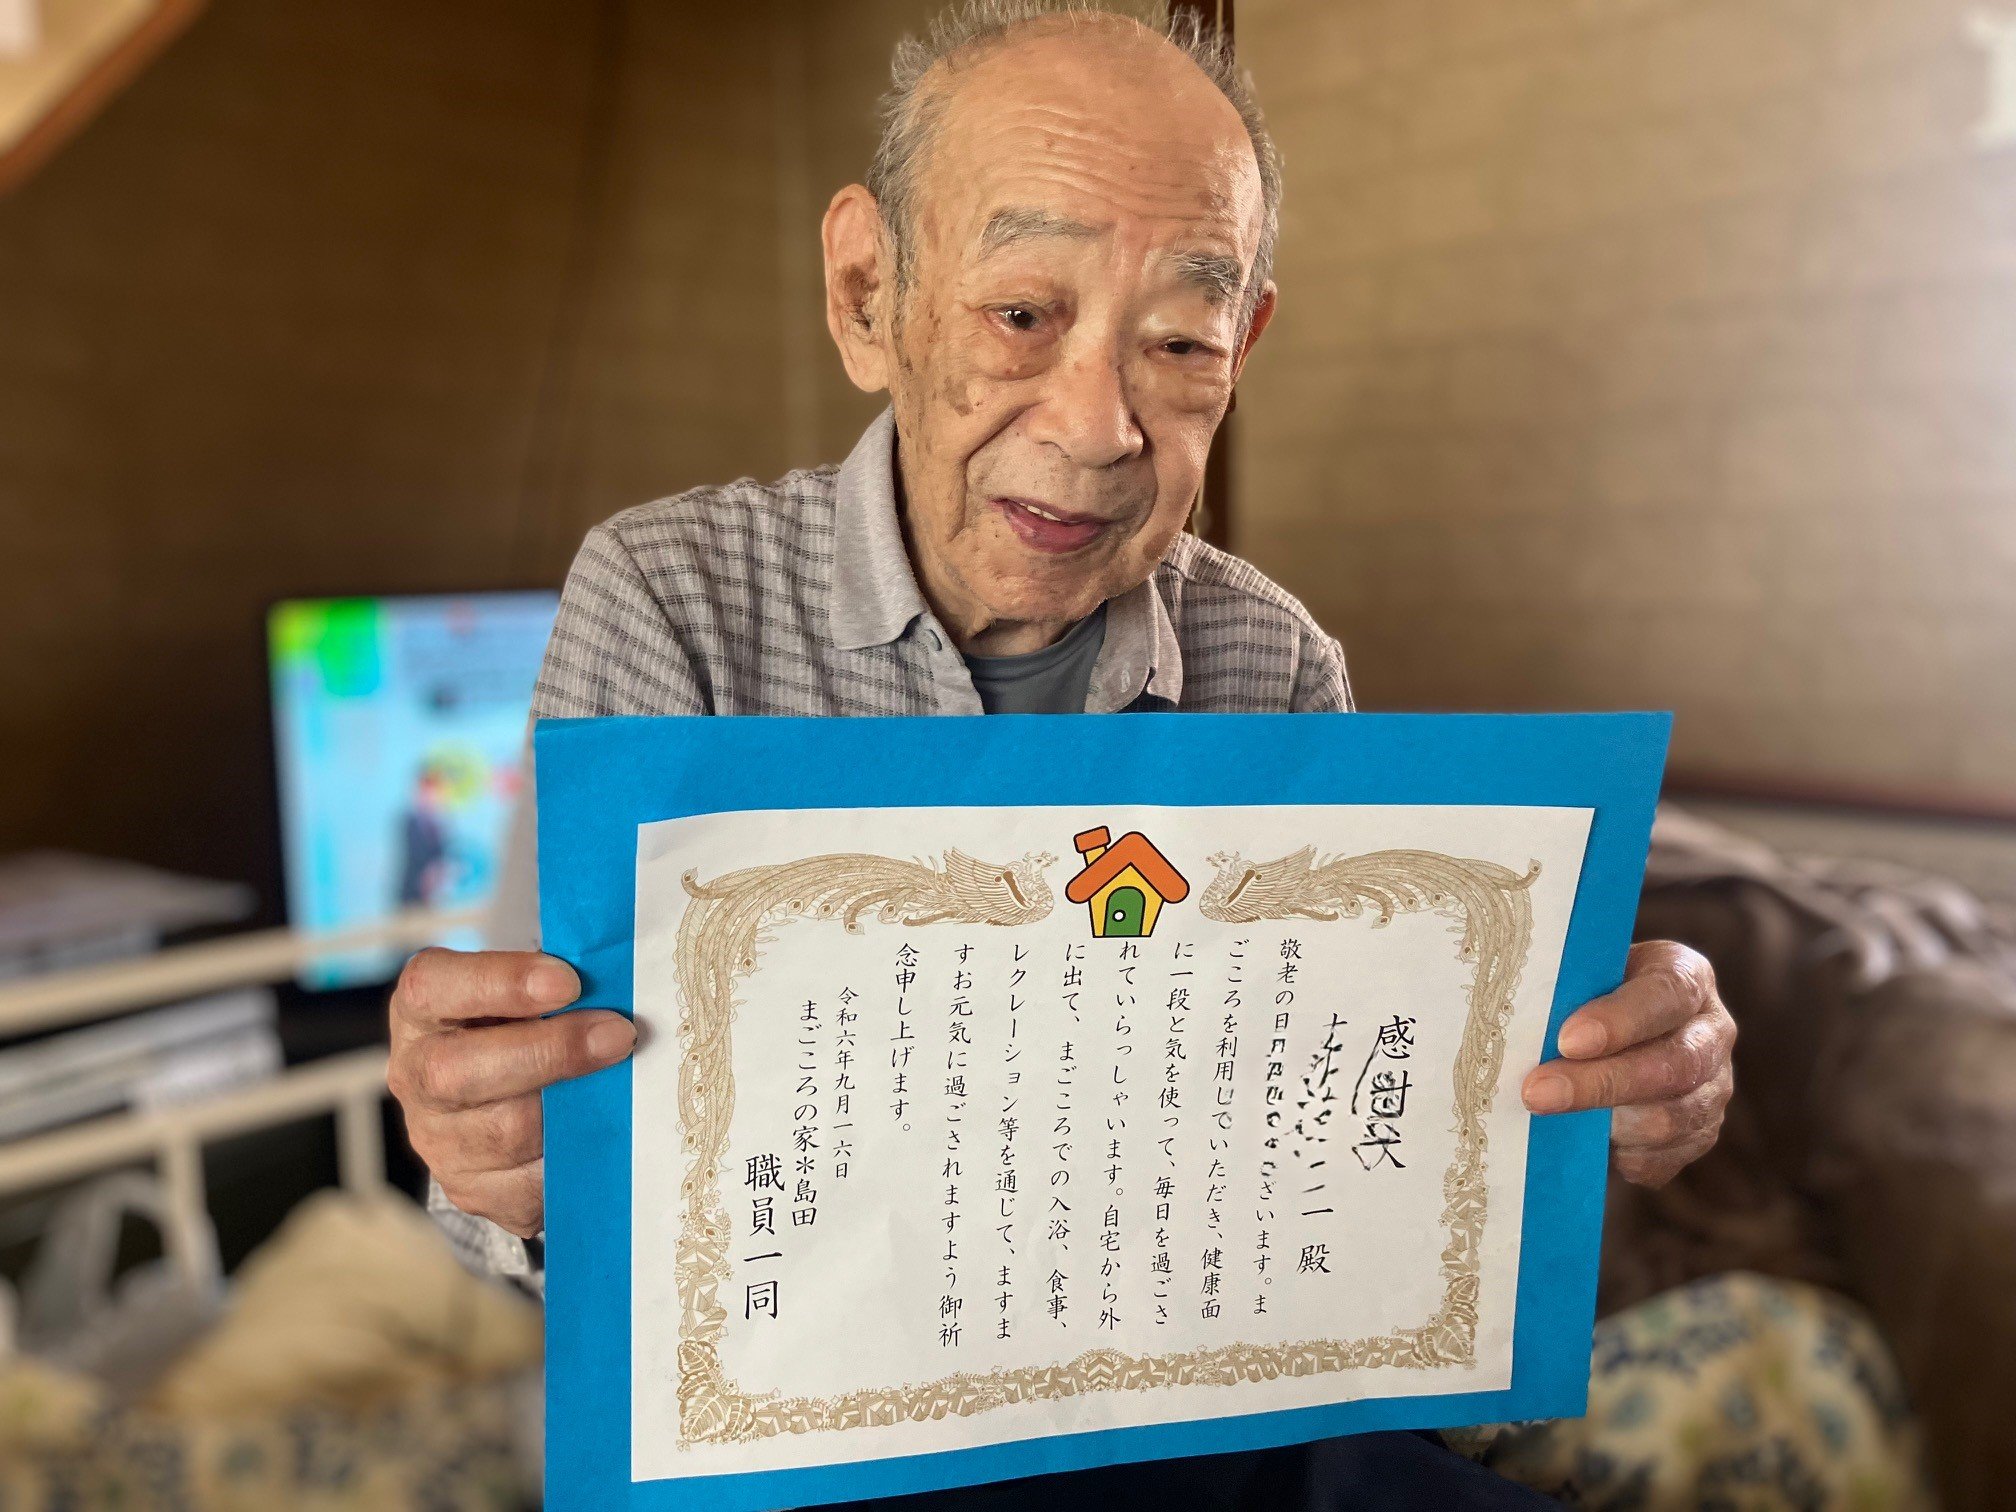 感
殿
敬老の日ございます。ま
ごころを利用していただき、健康面
に一段と気を使って、毎日を過ごさ
れていらっしゃいます。自宅から外
に出て、まごころでの入浴、食事、
レクレーション等を通じて、ますま
すお元気に過ごされますよう御祈
念申し上げます。
令和六年九月一六日
まごころの家＊島田
職員一同